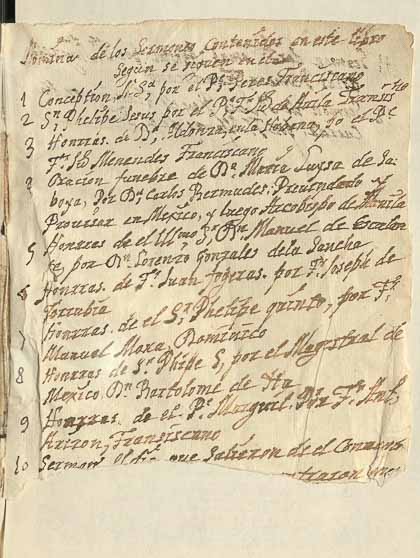 Nomina de los Sermones Contenidos en este Libro
Segun se siguen en el
1 Conception N. Sra, por el Pe. Peres Franciscano
2 Sn. Phelipe Jesus por el Pe. Fr. Jph de Avila Francis no
3 Honras de Da. Aldonza, en la Habana, por el Pe
Fr. Jph Menendes Franciscano
Oracion funebre de Da. Maria Luysa de Sa-
boya, Por Dn. Carlos Bermudes, Prevendado y
Provisor en Mexico, y luego Arcobispo de Manila
5 Honras de el Illmo Sr. Dn. Manuel de Escalan
te por Dn. Lorenzo Gonzales de la Sancha
6 Honrras de Fr. Juan por Fr. Joseph de
Torrubia
7 Honrras de el Sr. Dn. Phelipe quinto, por Fr.
Manuel Mora, Dominico
8 Honras de Sr. Phipe 5, por el Magistral de
Mexico Dn. Bartolome de Ita
9 Honrras de el Pe. Margil Por Fr. Ant.
Arizon, Fransiscano
10 Sermon el dia que salieron de el Comun